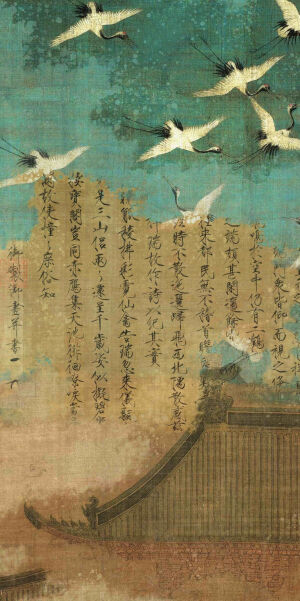 皆仰而視之倏
空中仍有二鶴
之端頗甚閒適餘
往來都民無不稽首瞻
經時不散迤邐歸飛西北隅散感茲
祥瑞故作詩以紀其實
觚稜拂彩霓仙禽告瑞忽來儀飄
元是三山侶兩兩還呈千歲姿似擬碧鸞
棲寶閣豈同赤雁集天池徘徊嘹唳當丹
闕故使憧憧庶俗知
御製御畫并書